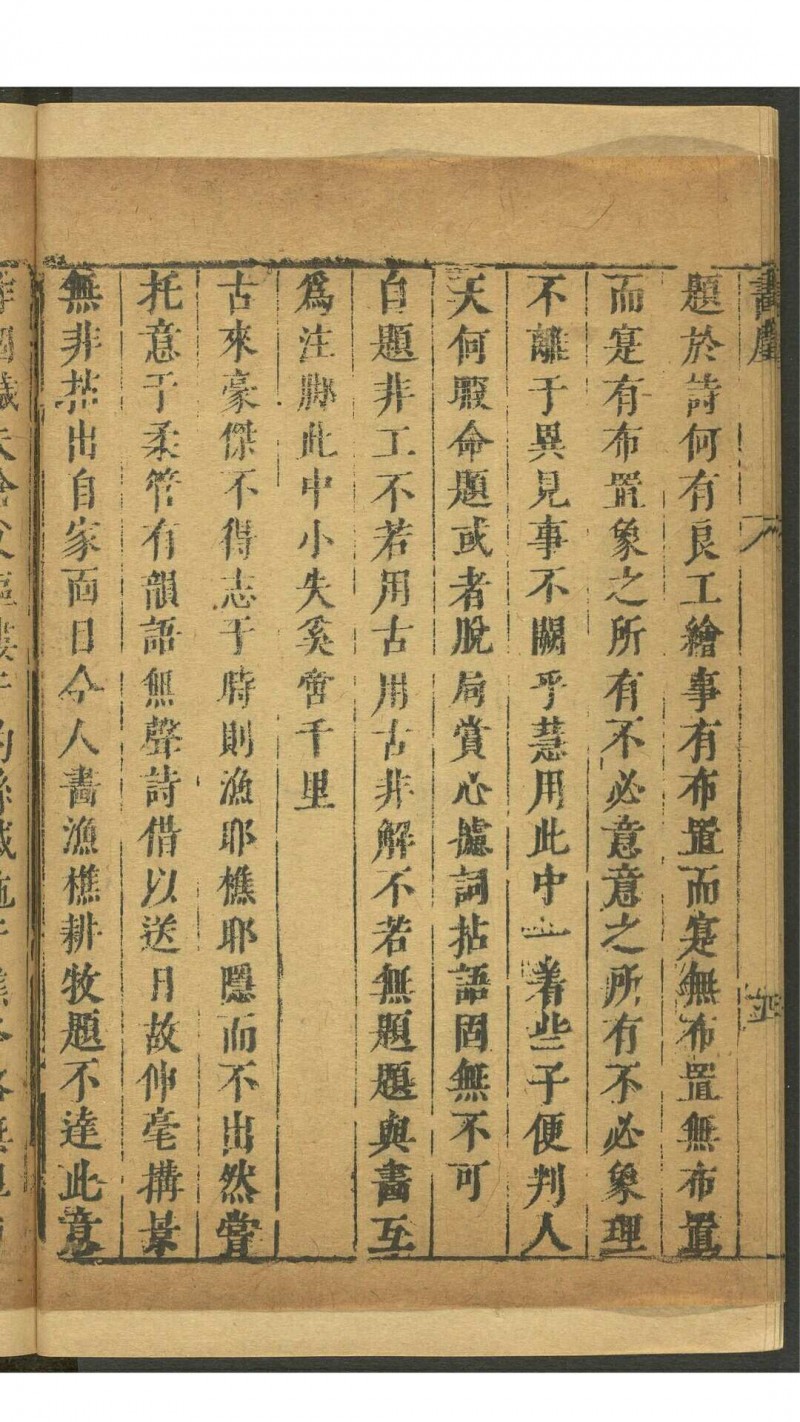 畫麈
題於詩何有良工繪事有布置而寔無布置無布置
而寔有布置象之所有不必意意之所有不必象理
不離于異見事不關乎慧用此中一着些子便判人
天何暇命題或者脫局賞心攄詞拈語固無不可
自題非工不若用古用古非解不若無題題與畫互
爲注脚此中小失奚啻千里
古來豪傑不得志于時則漁耶樵耶隱而不出然嘗
托意于柔管有韻語無聲詩借以送日故伸毫搆景
無非拈出自家面目今人畫漁樵耕牧題不達此意